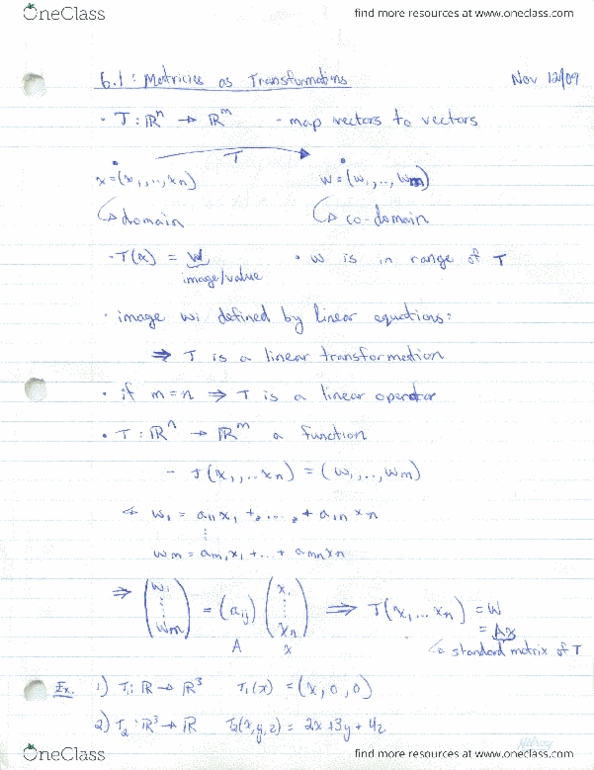 OneClass find more resources at www.oneclass.com
6.1: Matricies as Transformations Nov 12/09
· T: ℝⁿ → ℝᵐ - map vectors to vectors
T
x=(x₁,...,xₙ) w=(w₁,...,wₘ)
↳ domain ↳ co-domain
· T(x) = w · w is in range of T
image/value
· image wi defined by linear equations:
⇒ T is a linear transformation
· if m=n ⇒ T is a linear operator
· T: ℝⁿ → ℝᵐ a function
- T(x₁,...xₙ) = (w₁,...,wₘ)
& w₁ = a₁₁x₁ +, ..., + a₁ₙxₙ
⋮
wₘ = aₘ₁x₁ + ... + aₘₙxₙ
⇒ (w₁ ⋮ wₘ) = (aij) (x₁ ⋮ xₙ) ⇒ T(x₁,...xₙ) = w
= Ax
A x ↳ standard matrix of T
Ex. 1) T₁: ℝ → ℝ³ T₁(x) = (x, 0, 0)
2) T₂: ℝ³ → ℝ T₂(x,y,z) = 2x+3y+4z
OneClass find more resources at www.oneclass.com